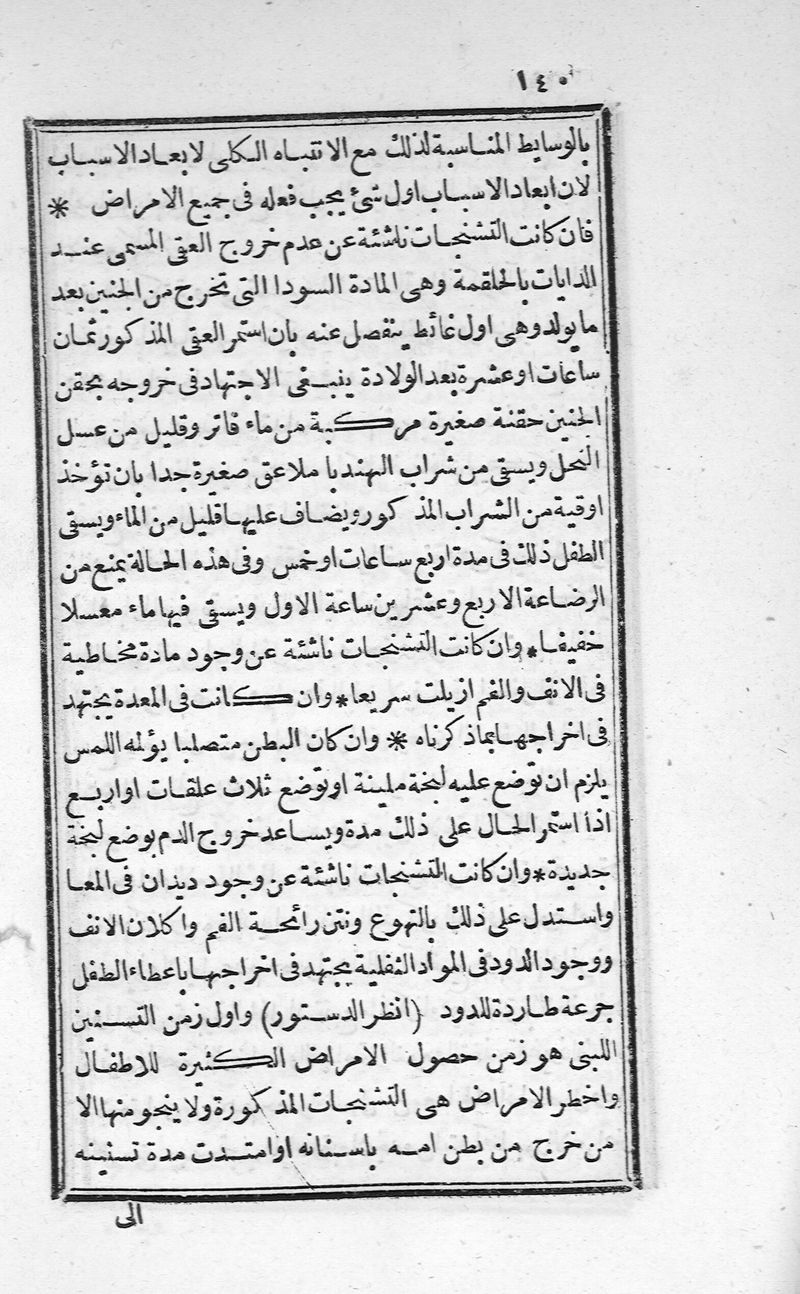 ١٤٠
بالوسايط المناسبة لذلك مع الانتباه الكلى لابعاد الاسباب
لان ابعاد الاسباب اول شئ يجب فعله فى جميع الامراض *
فان كانت التشنجات ناشئة عن عدم خروج العقى المسمى عند
الدايات بالحلقمة وهى المادة السودا التى تخرج من الجنين بعد
ما يولد وهى اول غائط ينفصل عنه بان استمر العقى المذكور ثمان
ساعات او عشرة بعد الولادة ينبغى الاجتهاد فى خروجه بحقن
الجنين حقنة صغيرة مركبة من ماء فاتر وقليل من عسل
النحل ويسقى من شراب الهندبا ملاعق صغيرة جدا بان تؤخذ
اوقية من الشراب المذكور ويضاف عليها قليل من الماء ويسقى
الطفل ذلك فى مدة اربع ساعات او خمس وفى هذه الحالة يمنع من
الرضاعة الاربع وعشرين ساعة الاول ويسقى فيها ماء معسلا
خفيفا * وان كانت التشنجات ناشئة عن وجود مادة مخاطية
فى الانف والفم ازيلت سريعا * وان كانت فى المعدة يجتهد
فى اخراجها بماذكرناه * وان كان البطن متصلبا يؤلمه اللمس
يلزم ان توضع عليه لبخة ملينة او توضع ثلاث علقات او اربع
اذا استمر الحال على ذلك مدة ويساعد خروج الدم بوضع لبخة
جديدة * وان كانت التشنجات ناشئة عن وجود ديدان فى المعا
واستدل على ذلك بالتهوع ونتن رائحة الفم واكلان الانف
ووجود الدود فى المواد الثفلية يجتهد فى اخراجها باعطاء الطفل
جرعة طاردة للدود (انظر الدستور) واول زمن التسنين
اللبنى هو زمن حصول الامراض الكثيرة للاطفال
واخطر الامراض هى التشنجات المذكورة ولا ينجو منها الا
من خرج من بطن امه باسنانه او امتدت مدة تسنينه
الى